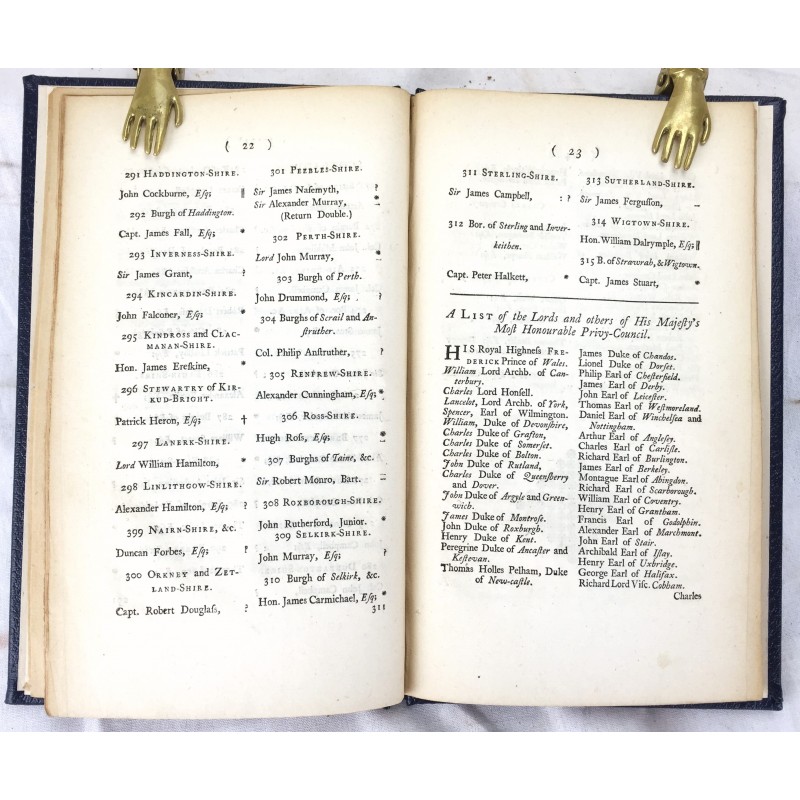 ( 22 )
291 HADDINGTON-SHIRE.
John Cockburne, Esq; ‖
292 Burgh of Haddington.
Capt. James Fall, Esq; *
293 INVERNESS-SHIRE.
Sir James Grant, ?
294 KINCARDIN-SHIRE.
John Falconer, Esq; *
295 KINDROSS and CLAC-
MANAN-SHIRE.
Hon. James Erskine, *
296 STEWARTY OF KIR-
KUD-BRIGHT.
Patrick Heron, Esq; †
297 LANERK-SHIRE.
Lord William Hamilton, *
298 LINLITHGOW-SHIRE.
Alexander Hamilton, Esq; ?
399 NAIRN-SHIRE, &c.
Duncan Forbes, Esq;
300 ORKNEY and ZET-
LAND-SHIRE.
Capt. Robert Douglaſs, ?
301 PEEBLES-SHIRE.
Sir James Naſemyth, ?
Sir Alexander Murray,
(Return Double.)
302 PERTH-SHIRE.
Lord John Murray,
303 Burgh of Perth.
John Drummond, Eſq; ?
304 Burghs of Scrail and An-
ſtruther.
Col. Philip Anſtruther,
305 RENFREW-SHIRE.
Alexander Cunningham, Eſq; *
306 ROSS-SHIRE.
Hugh Roſs, Eſq;
307 Burghs of Taine, &c.
Sir Robert Monro, Bart.
308 ROXBOROUGH-SHIRE.
John Rutherford, Junior. *
309 SELKIRK-SHIRE.
John Murray, Eſq;
310 Burgh of Selkirk, &c.
Hon. James Carmichael, Eſq; *
311
( 23 )
311 STERLING-SHIRE.
Sir James Campbell, : ?
312 Bor. of Sterling and Inver-
keithen.
Capt. Peter Halkett, *
313 SUTHERLAND-SHIRE.
Sir James Ferguſſon,
314 WIGTOWN-SHIRE.
Hon. William Dalrymple, Eſq; ‖
315 B. of Strawrah, & Wigtown.
Capt. James Stuart, *
A LIST of the Lords and others of His Majeſty's
Moſt Honourable Privy-Council.
HIS Royal Highneſs FRE-
DERICK Prince of Wales.
William Lord Archb. of Can-
terbury.
Charles Lord Honſell.
Lancelot, Lord Archb. of York,
Spencer, Earl of Wilmington.
William, Duke of Devonſhire,
Charles Duke of Grafton,
Charles Duke of Somerſet.
Charles Duke of Bolton.
John Duke of Rutland,
Charles Duke of Queenſberry
and Dover.
John Duke of Argyle and Green-
wich.
James Duke of Montroſe.
John Duke of Roxburgh.
Henry Duke of Kent.
Peregrine Duke of Ancaſter and
Keſtevan.
Thomas Holles Pelham, Duke
of New-caſtle.
James Duke of Chandos.
Lionel Duke of Dorſet.
Philip Earl of Cheſterfield.
James Earl of Derby.
John Earl of Leiceſter.
Thomas Earl of Weſtmoreland.
Daniel Earl of Winchelſea and
Nottingham.
Arthur Earl of Angleſey.
Charles Earl of Carliſle.
Richard Earl of Burlington.
James Earl of Berkeley.
Montague Earl of Abingdon.
Richard Earl of Scarborough.
William Earl of Coventry.
Henry Earl of Grantham.
Francis Earl of Godolphin.
Alexander Earl of Marchmont.
John Earl of Stair.
Archibald Earl of Iſlay.
Henry Earl of Uxbridge.
George Earl of Halifax.
Richard Lord Viſc. Cobham.
Charles